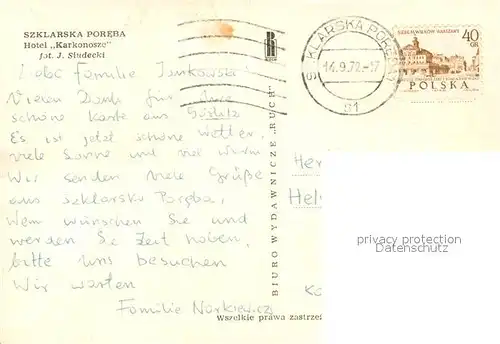 SZKLARSKA PORĘBA
Hotel „Karkonosze"
fot. J. Siudecki
Liebe Familie Jankowski
Vielen Dank für Ihre
schöne Karte aus Görlitz
Es ist jetzt schöne wetter,
viele Sonne und viel warm
Wir senden viele Grüße
aus Szklarska Poręba,
Wenn wünschen Sie und
werden Sie Zeit haben,
bitte uns besuchen
Wir warten
Familie Norkiewicz
BIURO WYDAWNICZE „RUCH"
Wszelkie prawa zastrzeż
SZKLARSKA PORĘBA
14.9.72.-17
40
GR
POLSKA
Her
Hel
privacy protection
Datenschutz